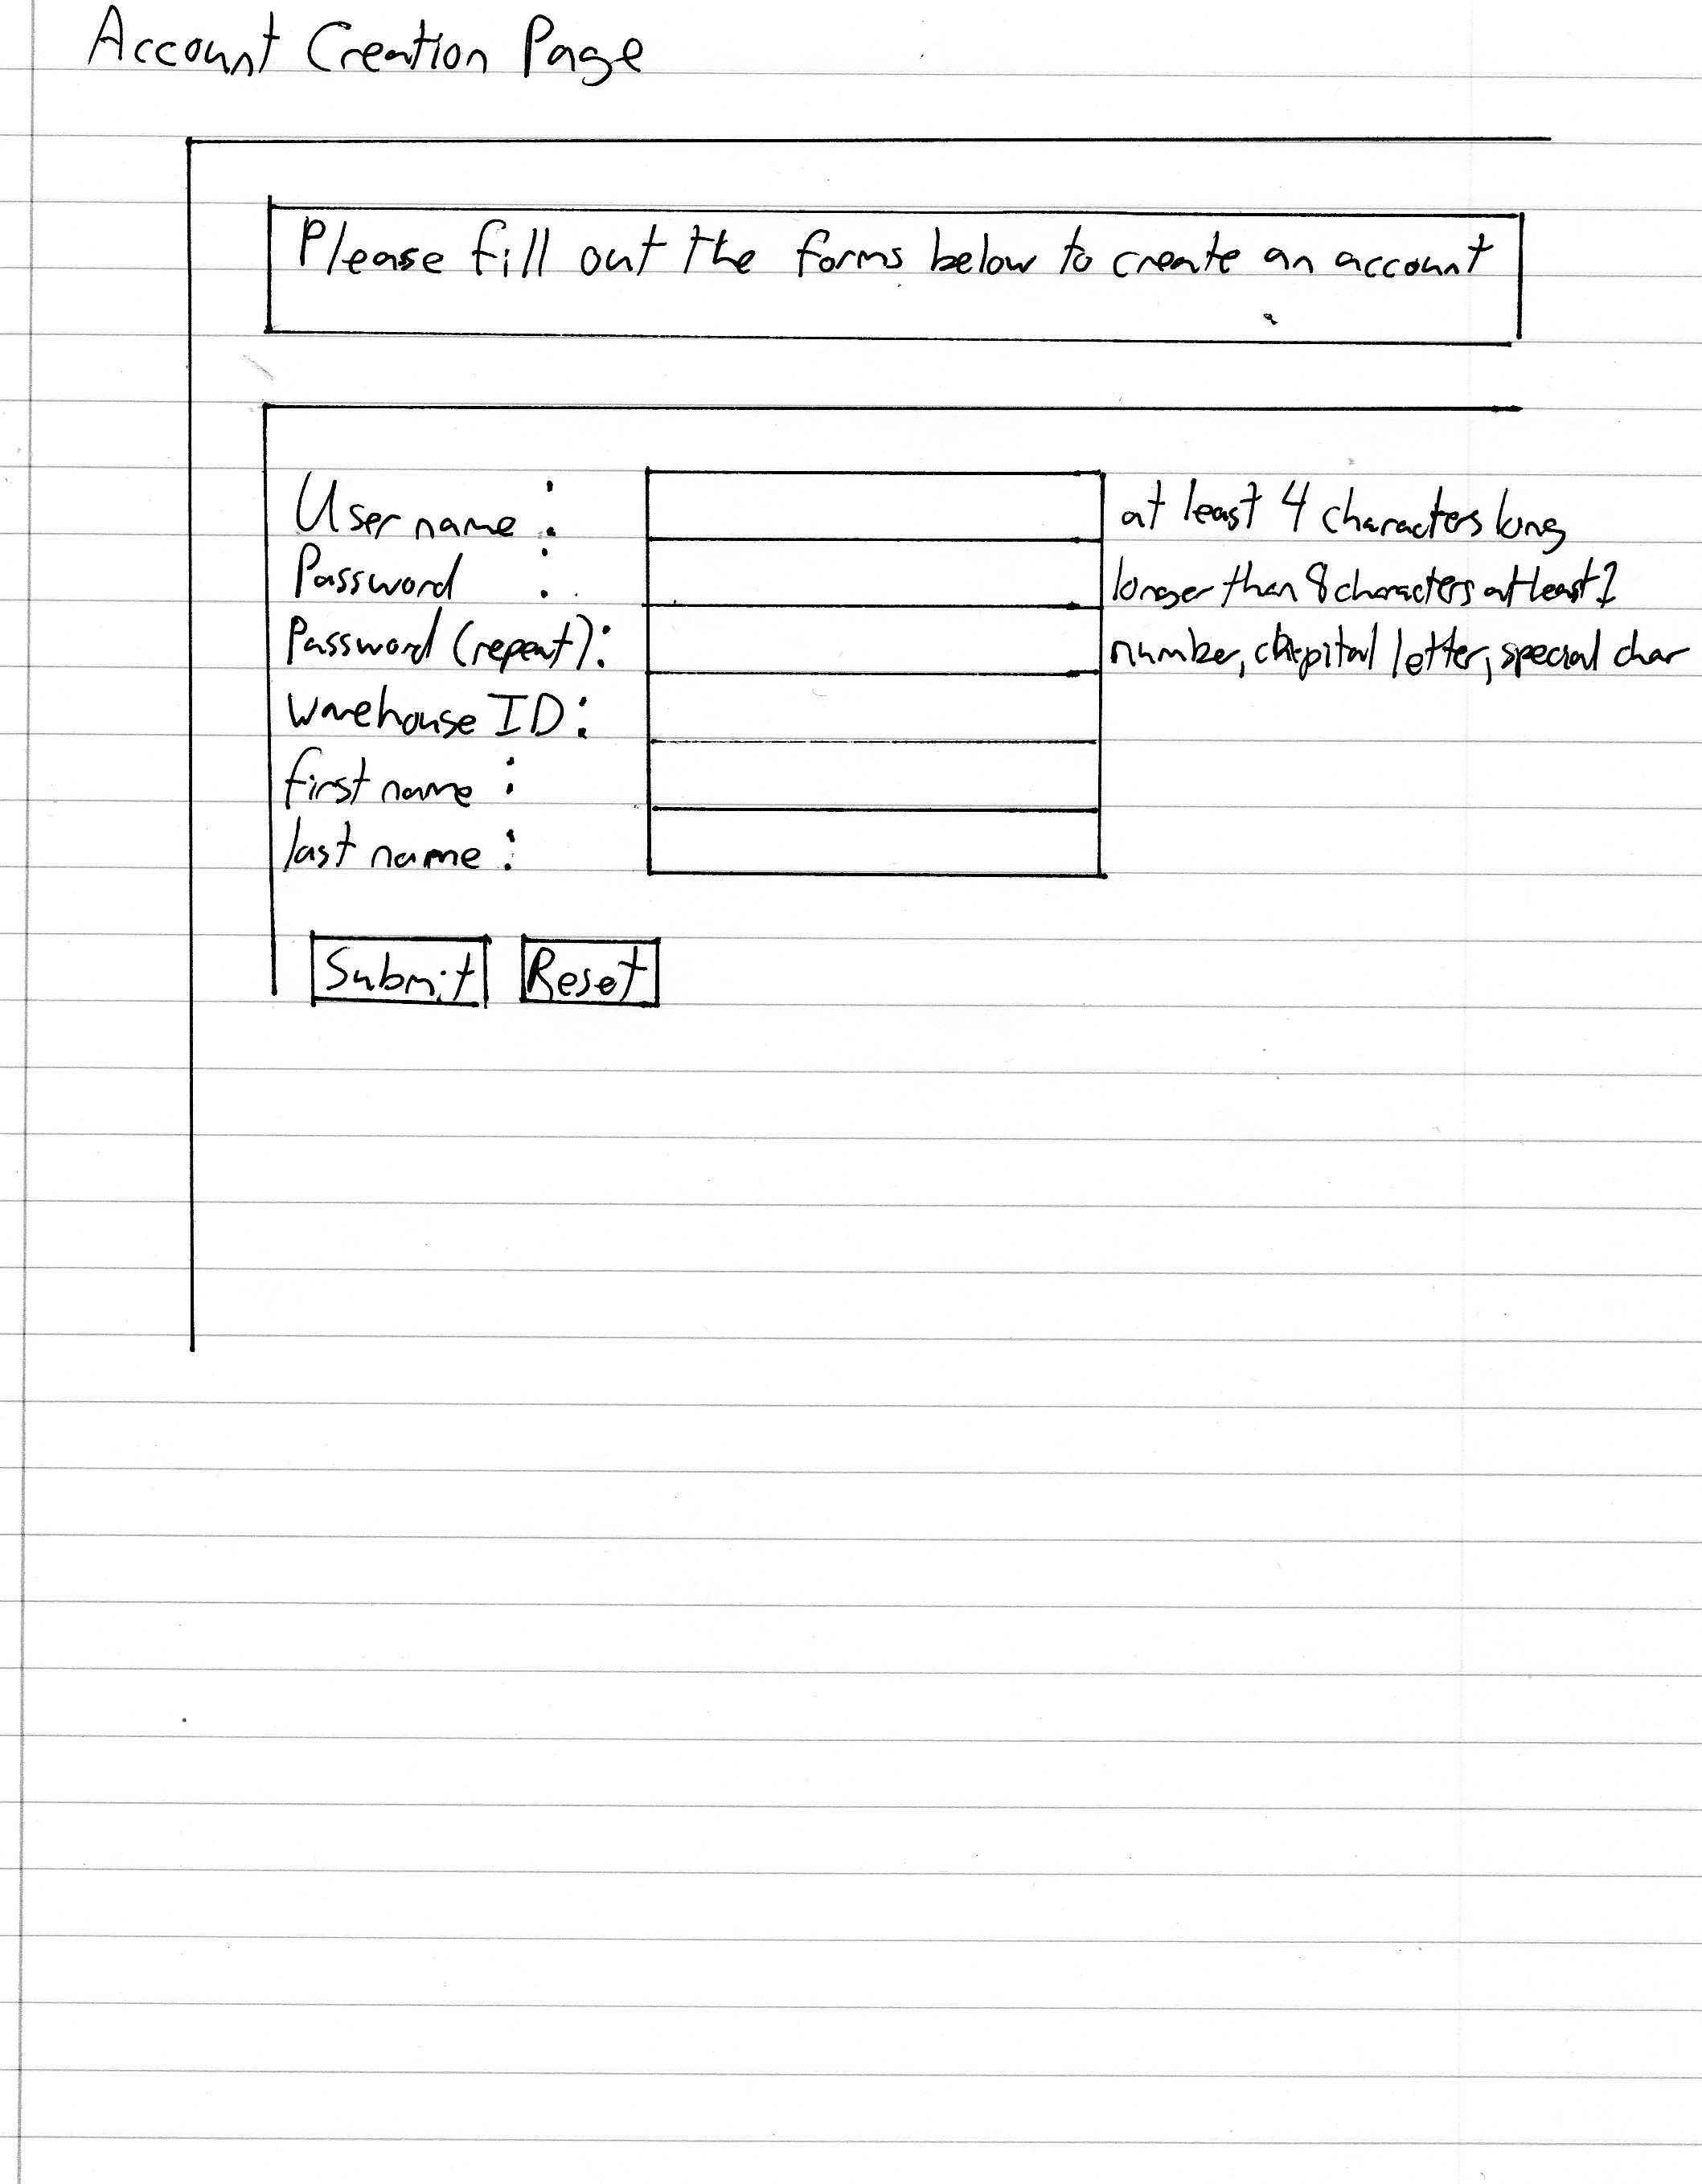 Account Creation Page
Please fill out the forms below to create an account
Username : at least 4 characters long
Password : longer than 8 characters at least 1
Password (repeat): number, capital letter, special char
Warehouse ID:
first name :
last name :
Submit Reset